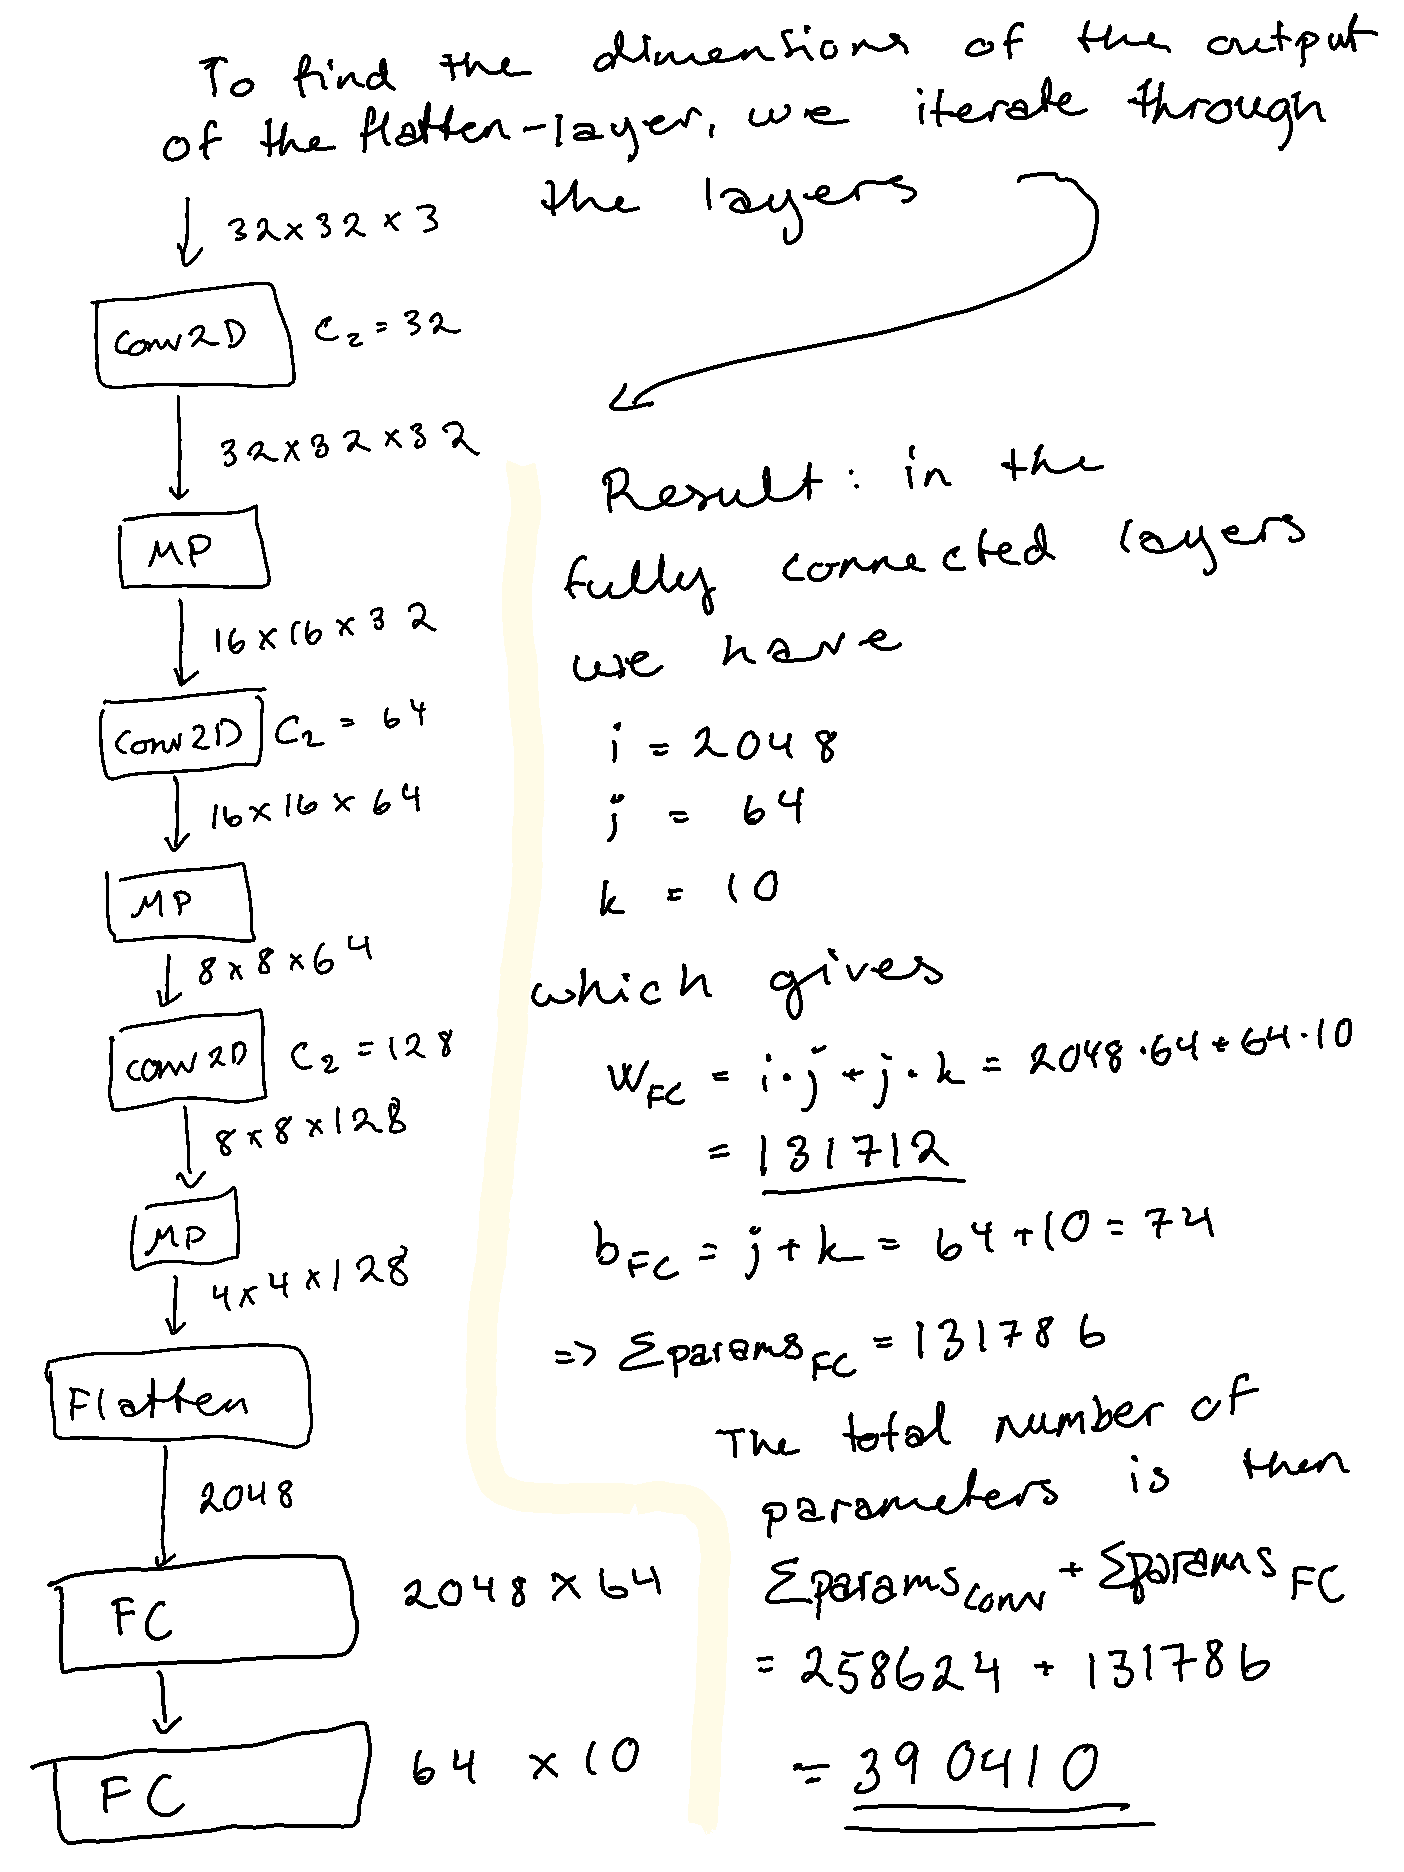 To find the dimensions of the output
of the flatten-layer, we iterate through
the layers
32x32x3
Conv2D
C₂ = 32
32x32x32
MP
16x16x32
Conv2D
C₂ = 64
16x16x64
MP
8x8x64
conv2D
C₂ = 128
8x8x128
MP
4x4x128
Flatten
2048
FC
2048 x 64
FC
64 x 10
Result: in the
fully connected layers
we have
i = 2048
j = 64
k = 10
which gives
W_FC = i·j + j·k = 2048·64+64·10
= 131712
b_FC = j+k = 64+10=74
=> Σparams_FC = 131786
The total number of
parameters is then
Σparams_conv + Σparams_FC
= 258624 + 131786
= 390410